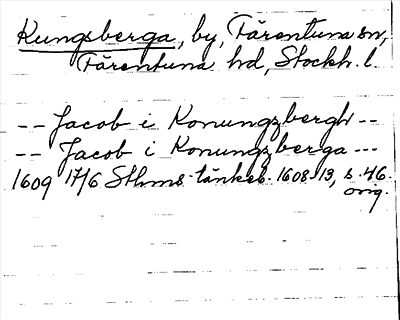 Kungsberga, by, Färentuna sn,
Färentuna hd, Stockh. l.
-- Jacob i Konungzbergh --
-- Jacob i Konungzberga ---
1609 17/6 Sthms tänkeb. 1608-13, s. 46.
orig.